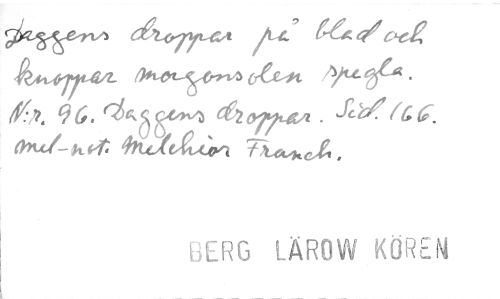 Daggens droppar på blad och
knoppar morgonsolen spegla.
N:r. 96. Daggens droppar. Sid. 166.
mel-not. Melchior Franch.
BERG LÄROW KÖREN